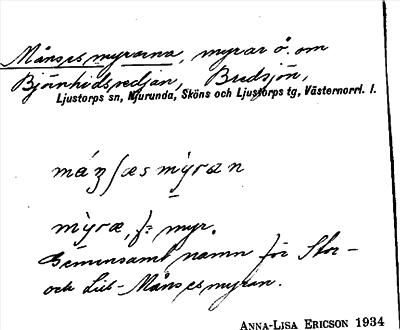 Månsesmyrarna, myrar ö. om
Björnhidsredjan, Bredsjön,
Ljustorps sn, Njurunda, Sköns och Ljustorps tg, Västernorrl. l.
mỳræ, f= myr.
Gemensamt namn för Stor-
och Lill-Månsesmyran.
ANNA-LISA ERICSON 1934